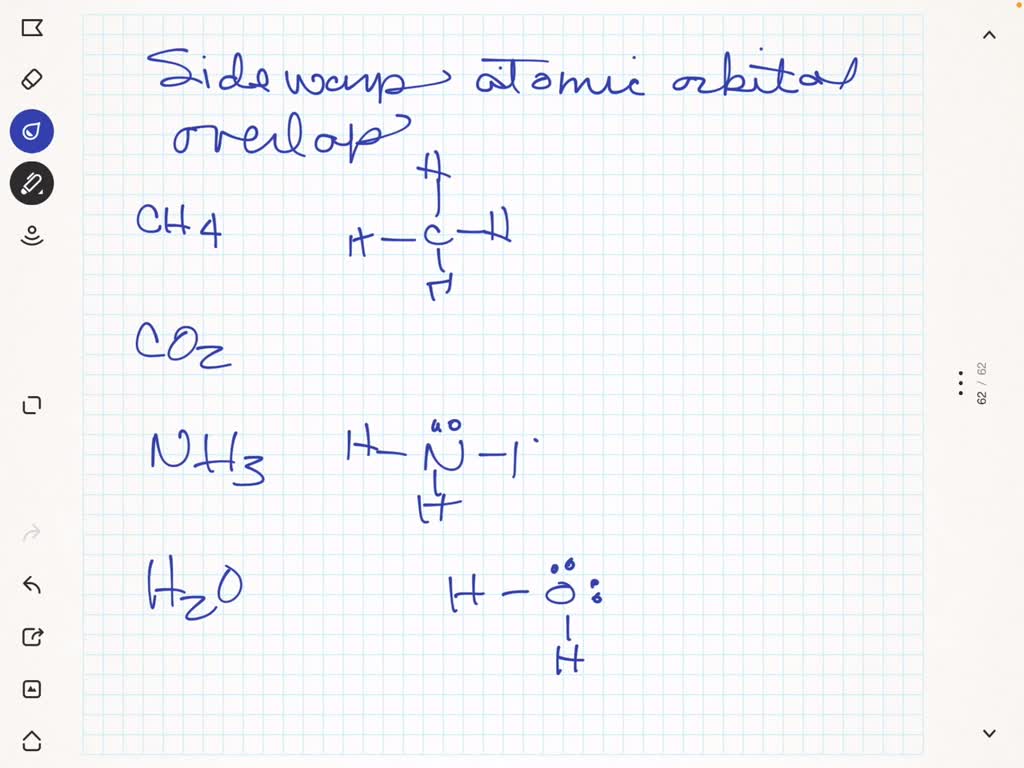 Sideways atomic orbital
overlap
H
CH4 H-C-H
H
CO2
H-N-
NH3
H
H2O H-O:
H
62 / 62